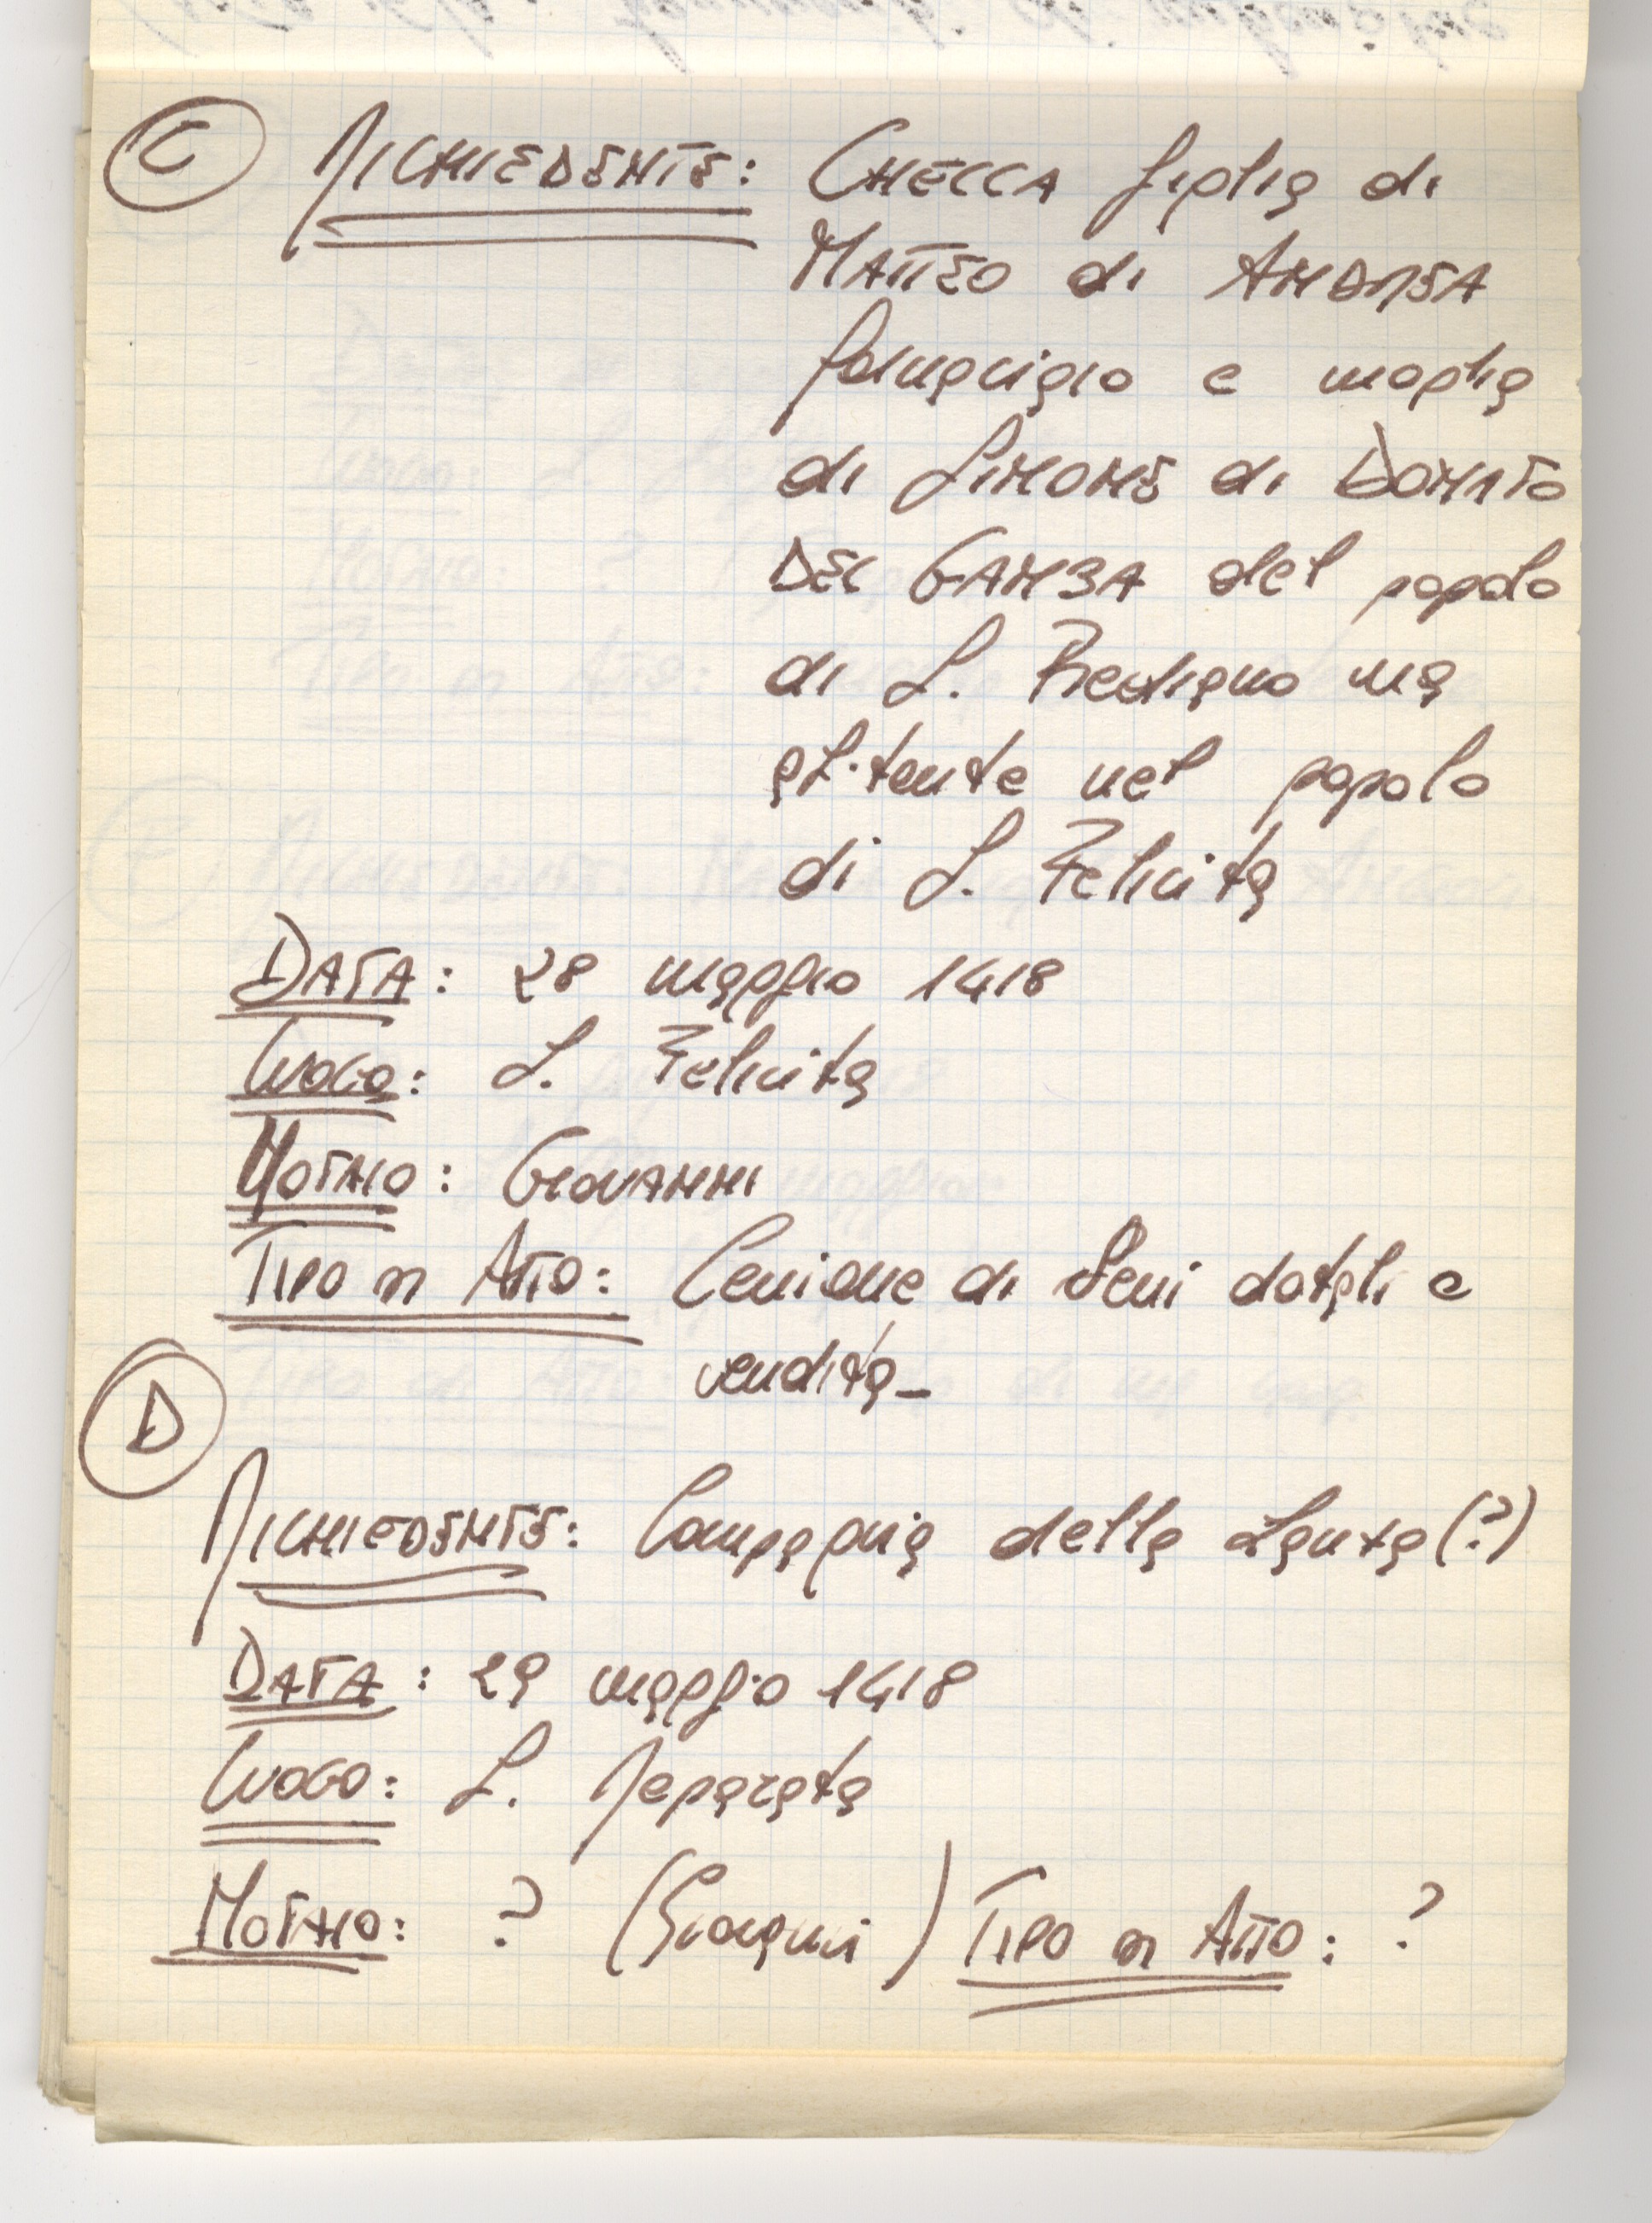 C RICHIEDENTE: CHECCA figlia di
MATTEO di ANDREA
fornaciaio e moglie
di SIMONE di DONATO
DEL GANZA del popolo
di S. Frediano ma
abitante nel popolo
di S. Felicita
DATA: 28 maggio 1418
LUOGO: S. Felicita
NOTAIO: GIOVANNI
TIPO DI ATTO: Cessione di beni dotali e
vendita
D
RICHIEDENTE: Compagnia della (?)
DATA: 29 maggio 1418
LUOGO: S. Reparata
NOTAIO: ? ( ) TIPO DI ATTO: ?